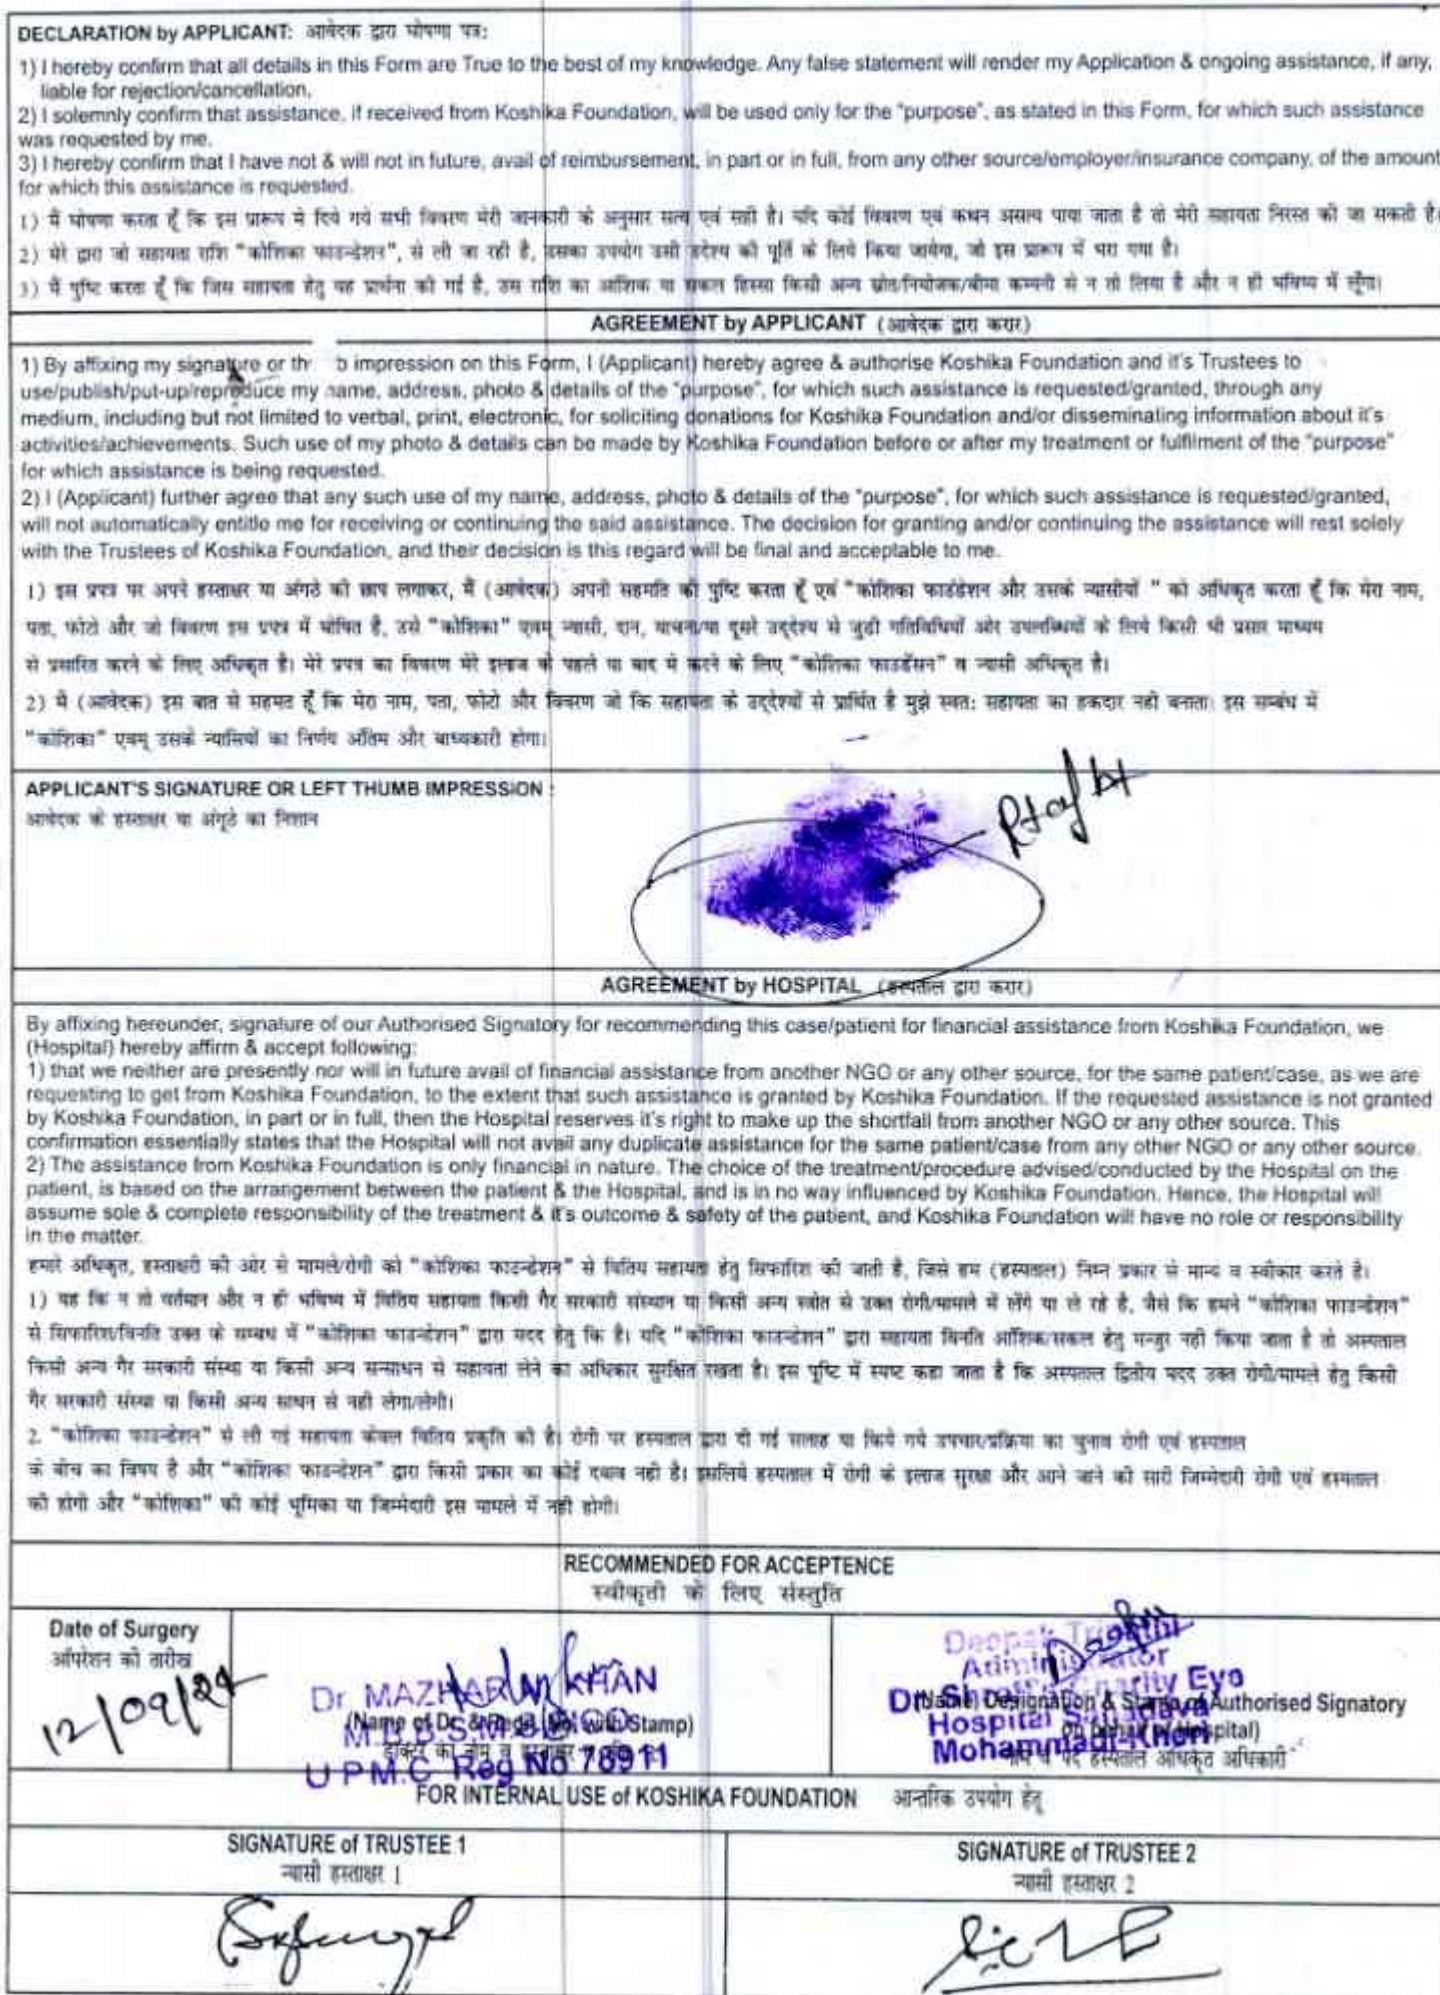 DECLARATION by APPLICANT: आवेदक द्वारा घोषणा पत्र:
1) I hereby confirm that all details in this Form are True to the best of my knowledge. Any false statement will render my Application & ongoing assistance, if any,
liable for rejection/cancellation.
2) I solemnly confirm that assistance, if received from Koshika Foundation, will be used only for the "purpose", as stated in this Form, for which such assistance
was requested by me.
3) I hereby confirm that I have not & will not in future, avail of reimbursement, in part or in full, from any other source/employer/insurance company, of the amount
for which this assistance is requested.
1) मैं घोषणा करता हूँ कि इस प्रारूप मे दिये गये सभी विवरण मेरी जानकारी के अनुसार सत्य एवं सही है। यदि कोई विवरण एवं कथन असत्य पाया जाता है तो मेरी सहायता निरस्त की जा सकती है।
2) मेरे द्वारा जो सहायता राशि "कोशिका फाउन्डेशन", से ली जा रही है, उसका उपयोग उसी उदेश्य की पूर्ति के लिये किया जायेगा, जो इस प्रारूप में भरा गया है।
3) मैं पुष्टि करता हूँ कि जिस सहायता हेतु यह प्रार्थना की गई है, उस राशि का आंशिक या सकल हिस्सा किसी अन्य स्रोत/नियोजक/बीमा कम्पनी से न तो लिया है और न ही भविष्य में लूँगा।
AGREEMENT by APPLICANT (आवेदक द्वारा करार)
1) By affixing my signature or th b impression on this Form, I (Applicant) hereby agree & authorise Koshika Foundation and it's Trustees to
use/publish/put-up/reproduce my name, address, photo & details of the "purpose", for which such assistance is requested/granted, through any
medium, including but not limited to verbal, print, electronic, for soliciting donations for Koshika Foundation and/or disseminating information about it's
activities/achievements. Such use of my photo & details can be made by Koshika Foundation before or after my treatment or fulfilment of the "purpose"
for which assistance is being requested.
2) I (Applicant) further agree that any such use of my name, address, photo & details of the "purpose", for which such assistance is requested/granted,
will not automatically entitle me for receiving or continuing the said assistance. The decision for granting and/or continuing the assistance will rest solely
with the Trustees of Koshika Foundation, and their decision is this regard will be final and acceptable to me.
1) इस प्रपत्र पर अपने हस्ताक्षर या अंगठे की छाप लगाकर, मैं (आवेदक) अपनी सहमति की पुष्टि करता हूँ एवं "कोशिका फाउंडेशन और उसके न्यासीयों " को अधिकृत करता हूँ कि मेरा नाम,
पता, फोटो और जो विवरण इस प्रपत्र में घोषित है, उसे "कोशिका" एवम् न्यासी, दान, याचना/या दूसरे उद्देश्य से जुडी गतिविधियों ओर उपलब्धियों के लिये किसी भी प्रसार माध्यम
से प्रसारित करने के लिए अधिकृत है। मेरे प्रपत्र का विवरण मेरे इलाज के पहले या बाद मे करने के लिए "कोशिका फाउडेंसन" व न्यासी अधिकृत है।
2) मै (आवेदक) इस बात से सहमत हूँ कि मेरा नाम, पता, फोटो और विवरण जो कि सहायता के उद्देश्यों से प्रार्थित है मुझे स्वत: सहायता का हकदार नही बनाता। इस सम्बंध में
"कोशिका" एवम् उसके न्यासियों का निर्णय अंतिम और बाध्यकारी होगा।
APPLICANT'S SIGNATURE OR LEFT THUMB IMPRESSION :
आवेदक के हस्ताक्षर या अंगूठे का निशान
AGREEMENT by HOSPITAL (हस्पताल द्वारा करार)
By affixing hereunder, signature of our Authorised Signatory for recommending this case/patient for financial assistance from Koshika Foundation, we
(Hospital) hereby affirm & accept following:
1) that we neither are presently nor will in future avail of financial assistance from another NGO or any other source, for the same patient/case, as we are
requesting to get from Koshika Foundation, to the extent that such assistance is granted by Koshika Foundation. If the requested assistance is not granted
by Koshika Foundation, in part or in full, then the Hospital reserves it's right to make up the shortfall from another NGO or any other source. This
confirmation essentially states that the Hospital will not avail any duplicate assistance for the same patient/case from any other NGO or any other source.
2) The assistance from Koshika Foundation is only financial in nature. The choice of the treatment/procedure advised/conducted by the Hospital on the
patient, is based on the arrangement between the patient & the Hospital, and is in no way influenced by Koshika Foundation. Hence, the Hospital will
assume sole & complete responsibility of the treatment & it's outcome & safety of the patient, and Koshika Foundation will have no role or responsibility
in the matter.
हमारे अधिकृत, हस्ताक्षरी की ओर से मामले/रोगी को "कोशिका फाउन्डेशन" से वितिय सहायता हेतु सिफारिश की जाती है, जिसे हम (हस्पताल) निम्न प्रकार से मान्य व स्वीकार करते है।
1) यह कि न तो वर्तमान और न ही भविष्य में वितिय सहायता किसी गैर सरकारी संस्थान या किसी अन्य स्त्रोत से उक्त रोगी/मामले में लेंगे या ले रहे है, जैसे कि हमने "कोशिका फाउन्डेशन"
से सिफारिश/विनति उक्त के सम्बध में "कोशिका फाउन्डेशन" द्वारा मदद हेतु कि है। यदि "कोशिका फाउन्डेशन" द्वारा सहायता विनति आंशिक/सकल हेतु मन्जुर नही किया जाता है तो अस्पताल
किसी अन्य गैर सरकारी संस्था या किसी अन्य सन्साधन से सहायता लेने का अधिकार सुरक्षित रखता है। इस पूष्टि में स्पष्ट कहा जाता है कि अस्पताल द्वितीय मदद उक्त रोगी/मामले हेतु किसी
गैर सरकारी संस्था या किसी अन्य साधन से नही लेगा/लेगी।
2. "कोशिका फाउन्डेशन" से ली गई सहायता केवल वितिय प्रकृति की है। रोगी पर हस्पताल द्वारा दी गई सलाह या किये गये उपचार/प्रक्रिया का चुनाव रोगी एवं हस्पताल
के बीच का विषय है और "कोशिका फाउन्डेशन" द्वारा किसी प्रकार का कोई दबाव नही है। इसलिये हस्पताल में रोगी के इलाज सुरक्षा और आने जाने की सारी जिम्मेदारी रोगी एवं हस्पताल
की होगी और "कोशिका" की कोई भूमिका या जिम्मेदारी इस मामले में नही होगी।
RECOMMENDED FOR ACCEPTENCE
स्वीकृती के लिए संस्तुति
Date of Surgery
ऑपरेशन की तारीख
12/09/24
Dr. MAZHAR KHAN
(Name of Dr. & Regd. No. with Stamp)
U P M.C Reg No 78911
Deepak Tripathi
Administrator
Dr. Shroff's Charity Eye
(Name, Designation & Stamp of Authorised Signatory
Hospital
on behalf of Hospital)
Mohammadi-Kheri
नाम व पद हस्पताल अधिकृत अधिकारी
FOR INTERNAL USE of KOSHIKA FOUNDATION आन्तरिक उपयोग हेतू
SIGNATURE of TRUSTEE 1
न्यासी हस्ताक्षर 1
SIGNATURE of TRUSTEE 2
न्यासी हस्ताक्षर 2